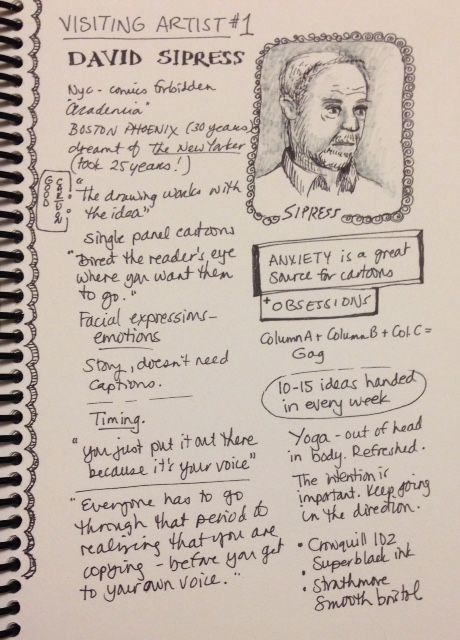 VISITING ARTIST #1
DAVID SIPRESS
Nyc - comics forbidden
"Academia"
BOSTON PHOENIX (30 years)
dreamt of The New Yorker
(took 25 years!)
"The drawing works with
the idea"
Single panel cartoons
"Direct the reader's eye
where you want them
to go."
Facial expressions -
emotions
Story, doesn't need
captions.
Timing.
"you just put it out there
because it's your voice"
"Everyone has to go
through that period to
realizing that you are
copying - before you get
to your own voice."
SIPRESS
ANXIETY is a great
source for cartoons
+ OBSESSIONS
Column A + Column B + Col. C =
Gag
10-15 ideas handed
in every week
Yoga - out of head
in body. Refreshed.
The intention is
important. Keep going
in the direction.
• Crowquill 102
• Superblack ink
• Strathmore
Smooth bristol